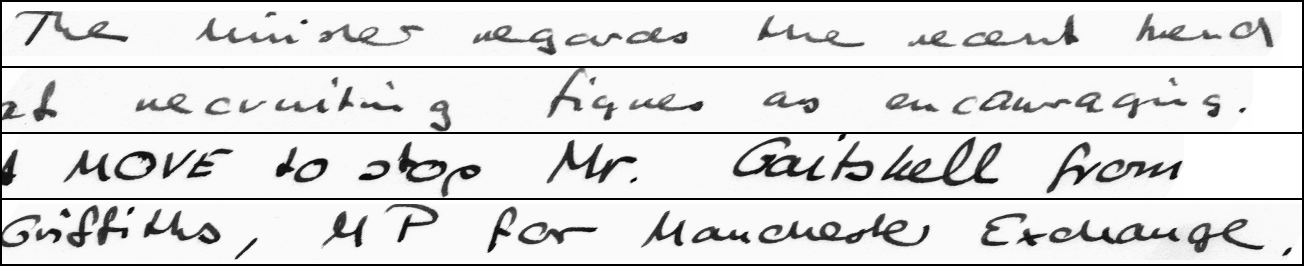 The Minister regards the recent trend
of recruiting figures as encouraging.
A MOVE to stop Mr. Gaitskell from
Griffiths, MP for Manchester Exchange,